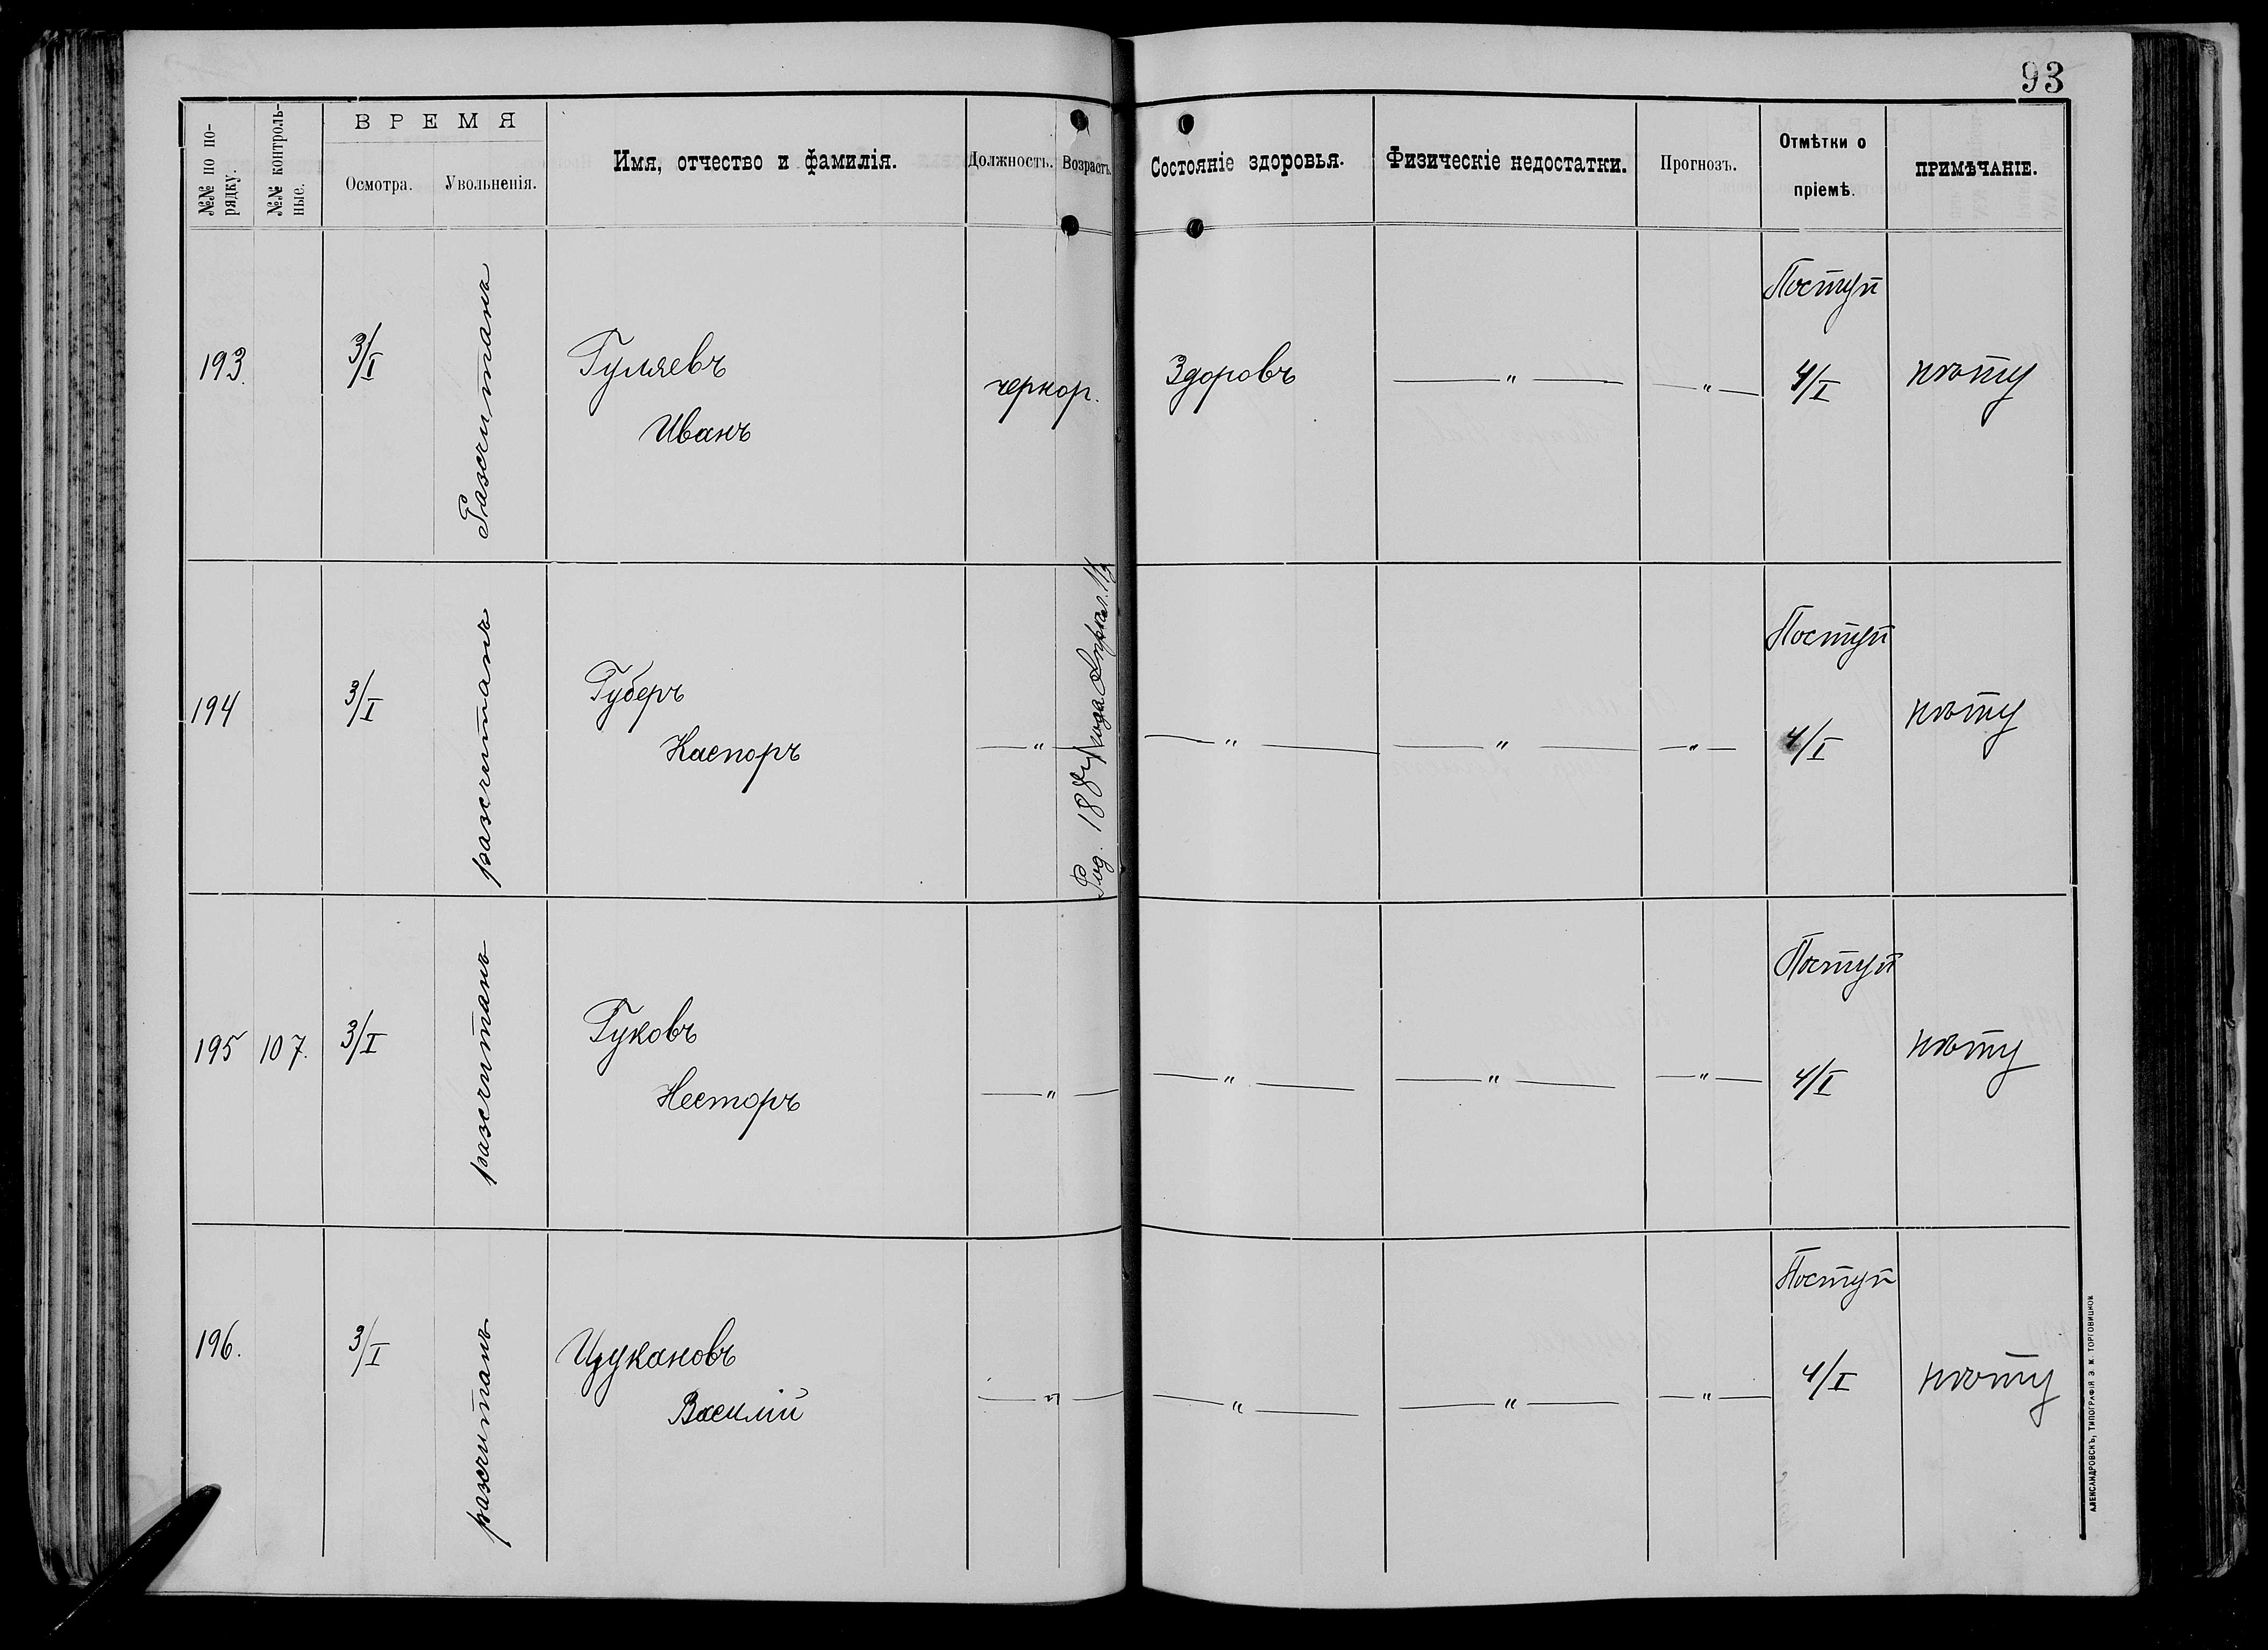 93
№№ по по-
рядку.
№№ контроль-
ные.
ВРЕМЯ
Осмотра.
Увольненія.
Имя, отчество и фамилія.
Должность.
Возрастъ.
Состояніе здоровья.
Физическіе недостатки.
Прогнозъ.
Отмѣтки о
пріемѣ.
ПРИМѢЧАНІЕ.
193.
3/I
Разсчитанъ
Гуляевъ
Иванъ
чернор.
Здоровъ
— " —
— " —
Поступ
4/I
194
3/I
разсчитанъ
Губеръ
Каспоръ
— " —
Род. 188 года
— " —
— " —
— " —
Поступ
4/I
195
107.
3/I
разсчитанъ
Гуковъ
Несторъ
— " —
— " —
— " —
— " —
Поступ
4/I
196.
3/I
разсчитанъ
Цукановъ
Василій
— " —
— " —
— " —
— " —
Поступ
4/I
АЛЕКСАНДРОВСКЪ, ТИПОГРАФІЯ Э. М. ТОРГОВИЦКОЙ